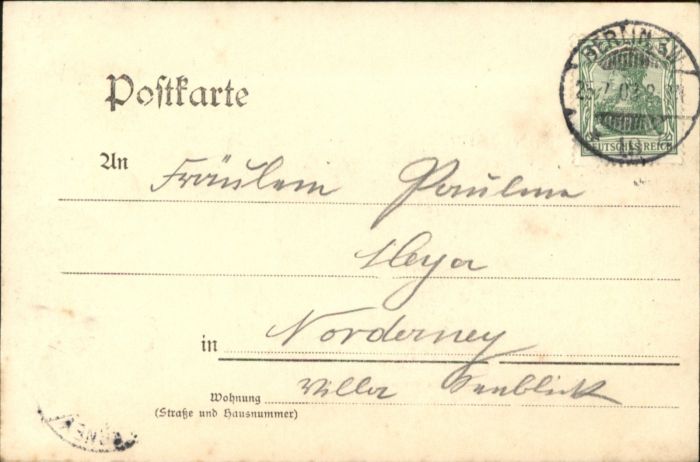 BERLIN S.W.
25.7.03.
19
DEUTSCHES REICH
Postkarte
An Fräulein Pauline
Heya
in Norderney
Wohnung Villa Seeblick
(Straße und Hausnummer)